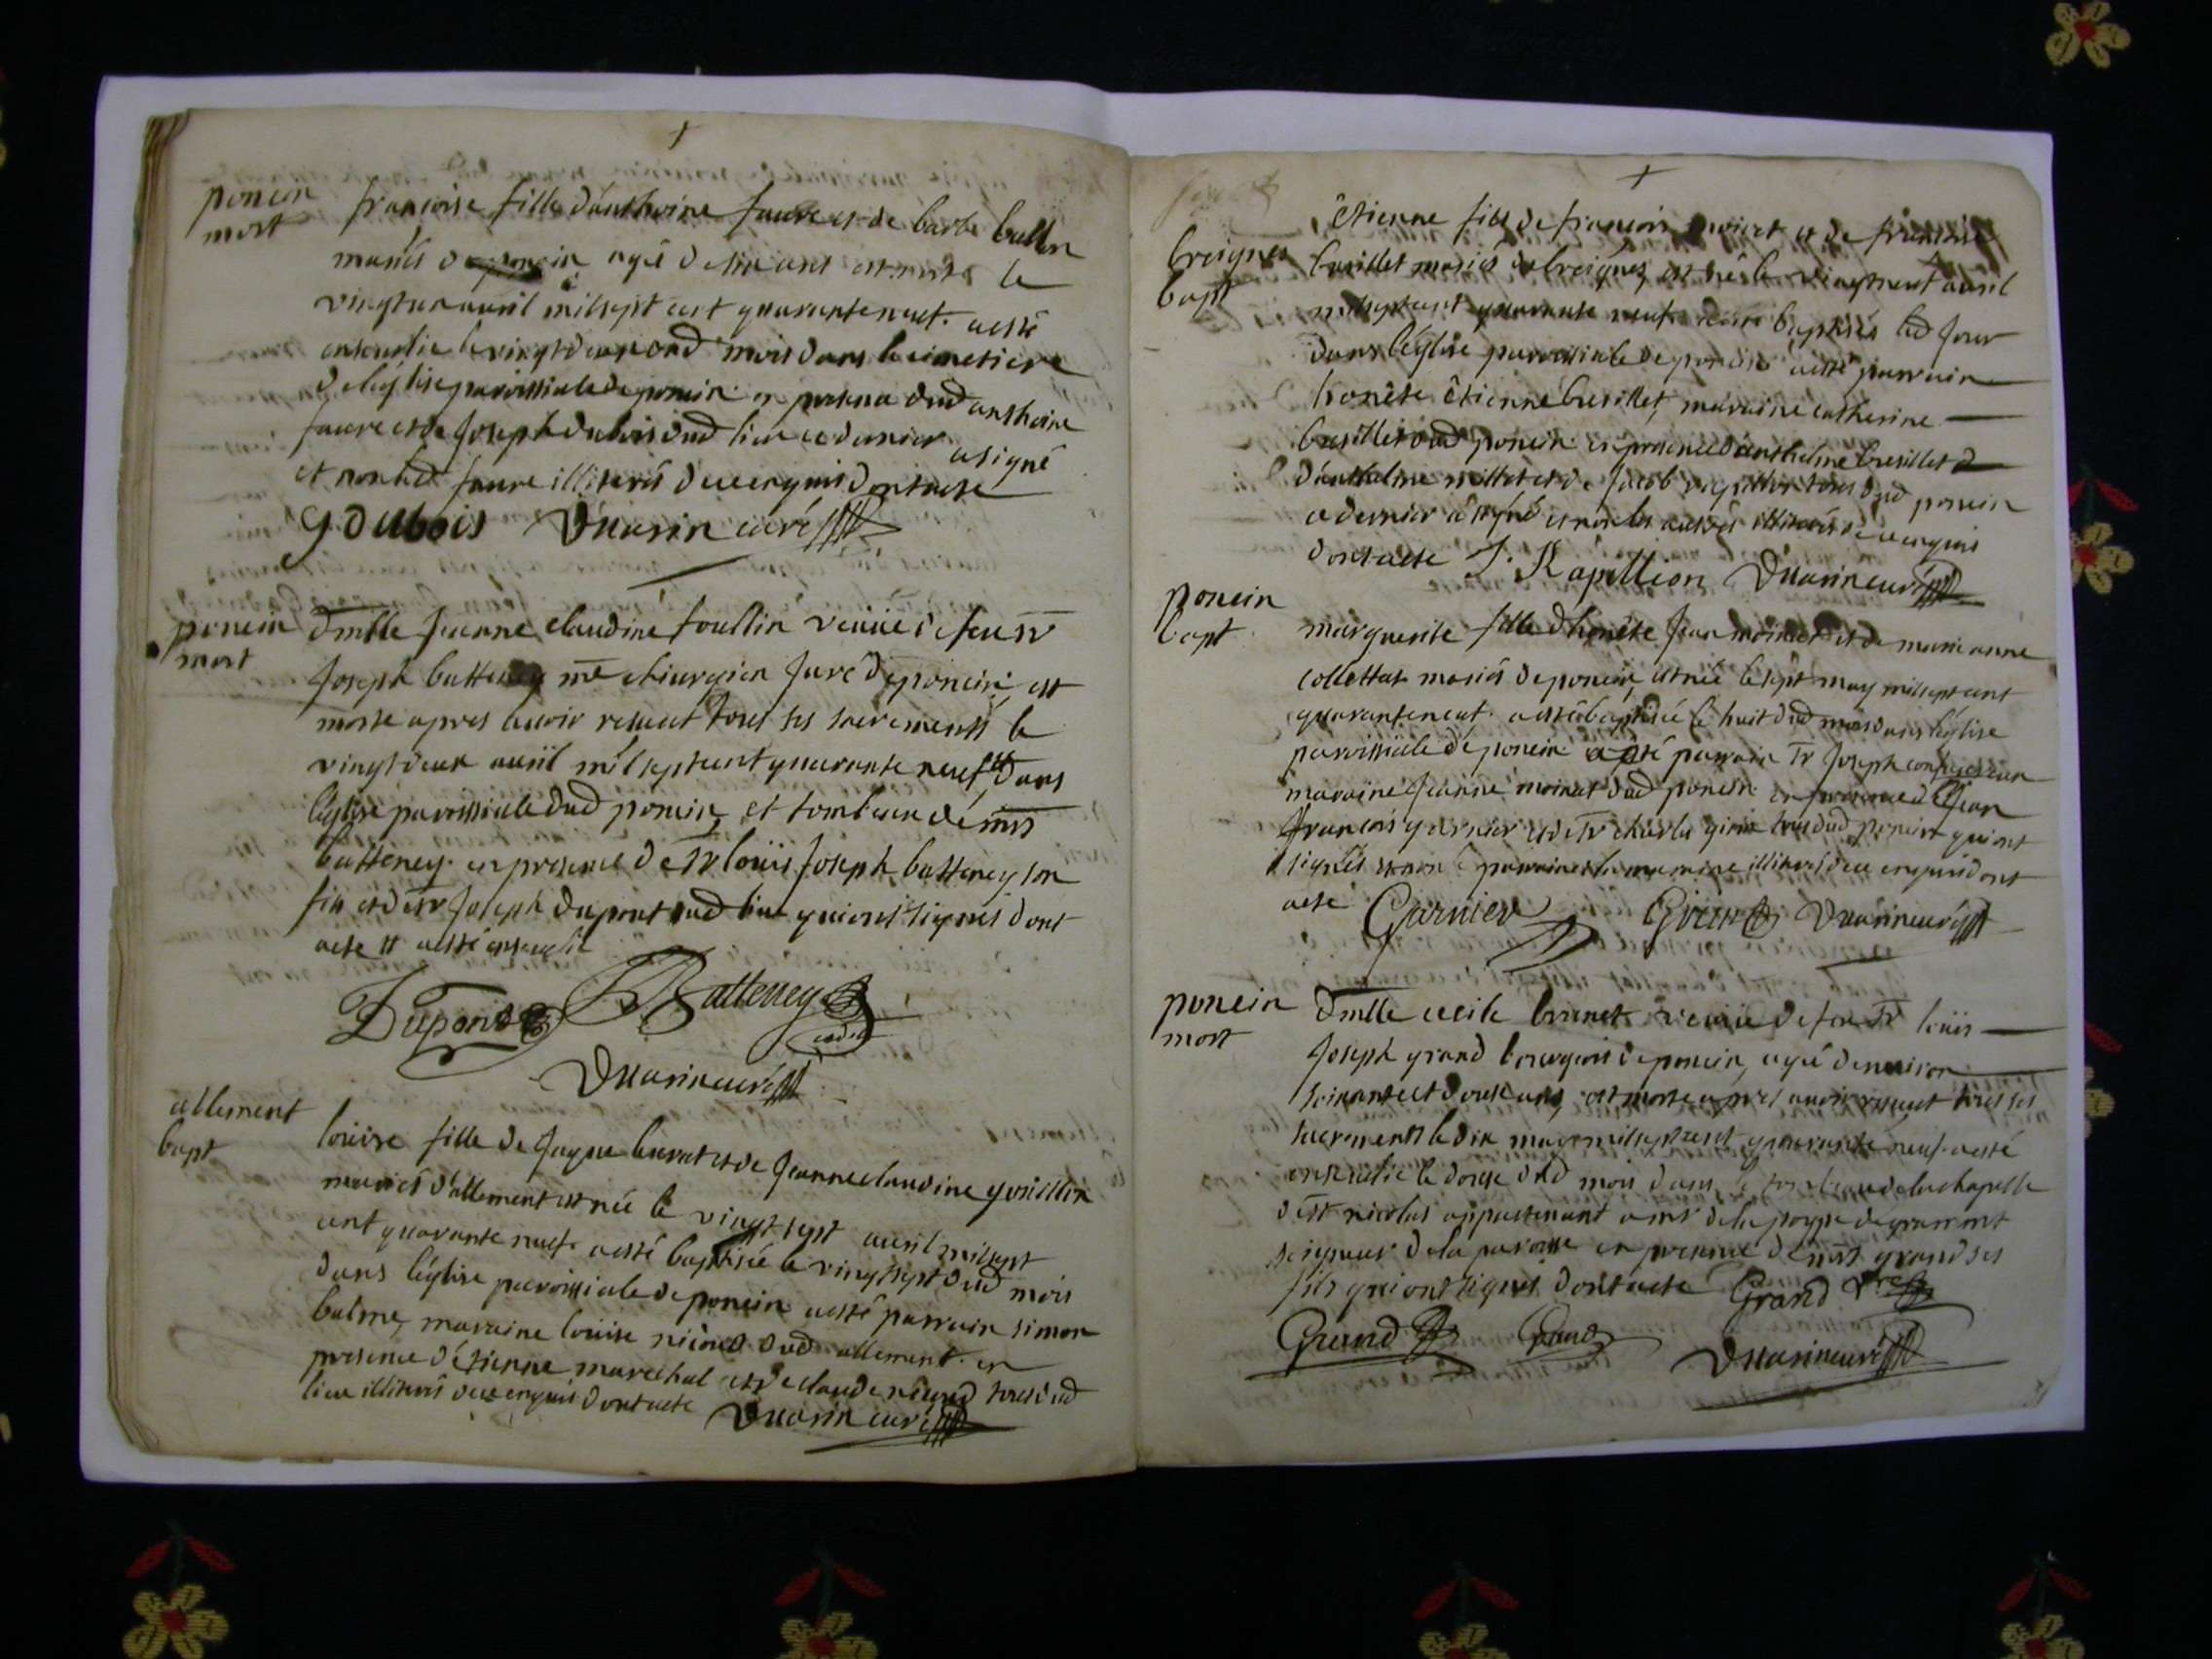 poncin
mort
francoise fille d'anthoine faure et de barbe ballin
mariés de poncin agé de six ans est morte le
vingtun auril mil sept cent quarante neuf. a esté
enseuelie le vingt deux dud mois dans le cimetiere
de l'eglise paroissiale de poncin en presence dud anthoine
faure et de Joseph dubois dud lieu ce dernier a signé
et non led faure illiteré de ce enquis dont acte
J dubois Duarin curé
poncin
mort
Dmlle Jeanne claudine foullin veuüe de feu sr
Joseph batteney me chiurgien Juré de poncin est
morte apres auoir receut tous ses sacrements le
vingt deux auril mil sept cent quarante neuf dans
l'eglise paroissiale dud poncin et tombeau de mrs
batteney en presence de sr loüis Joseph batteney son
fils et de sr Joseph dupont dud lieu qui ont signés dont
acte a esté enseuelie
Dupont Batteney
Duarin curé
allement
bapt
loüise fille de Jaque buvat et de Jeanne claudine gosillin
mariés d'allement est née le vingt sept auril mil sept
cent quarante neuf a esté baptisée le vingt sept dud mois
dans l'eglise paroissiale de poncin a esté parrain simon
balme, maraine loüise niciond dud allement. en
presence d'étienne marechal et de claude niciond tous dud
lieu illiterés de ce enquis dont acte Duarin curé
breignes
bapt
étienne fils de francois moinet et de francoise
bresillet mariés de breignes est né le vingt neuf auril
mil sept cent quarante neuf a esté baptisés led Jour
dans l'église paroissiale de poncin a esté parrain
honéte étienne bresillet, maraine catherine
bresillet dud poncin en presence d'anthelme bresillet
d'anthelme millet et de Jacob rapillion tous dud poncin
ce dernier a signé et non les autres illiterés de ce enquis
dont acte J. Rapillion Duarin curé
poncin
bapt
marguerite fille d'honéte Jean moinat et de marie anne
collettat mariés de poncin, est née le sept may mil sept cent
quarante neuf. a esté baptisée le huit dud mois dans l'église
paroissiale de poncin a esté parrain sr Joseph
maraine Jeanne moinat dud poncin en presence de sr Jean
francois garnier et de sr charles girin tous dud poncin qui ont
signés et non le parrain et la maraine illiterés de ce enquis dont
acte Garnier Girin Duarin curé
poncin
mort
Dmlle cecile brunet veuüe de feu sr loüis
Joseph grand bourgeois de poncin, agé d'enuiron
soixante et douse ans, est morte apres auoir receut tous ses
sacrements le dix may mil sept cent quarante neuf. a esté
enseuelie le douse dud mois dans le tombeau de la chapelle
de st nicolas appartenant a mr de la poype de grammont
seigneur de la paroisse en presence de mrs grand ses
fils qui ont signés dont acte Grand
Grand Grand
Duarin curé